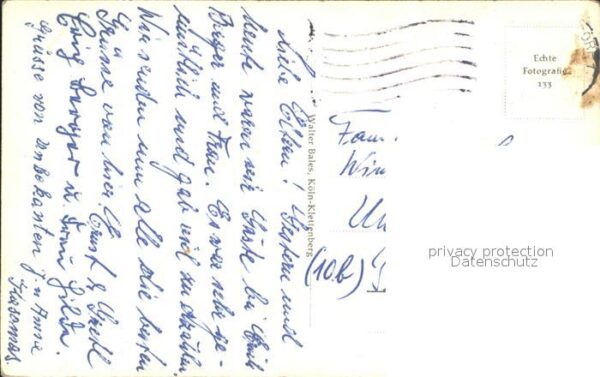 Liebe Eltern! Gestern und
heute waren wir Gäste bei Emil
Berger und Frau. Es war sehr ge-
mütlich und gab viel zu erzählen.
Wir senden nun alle die besten
Grüsse von hier. Ernst & Gretl
Emil Berger u. Frau Hilda
Grüsse von unbekannten
u. Anna
Walter Bales, Köln-Klettenberg
Echte
Fotografie
133
Fam.
Win
(10b)
privacy protection
Datenschutz